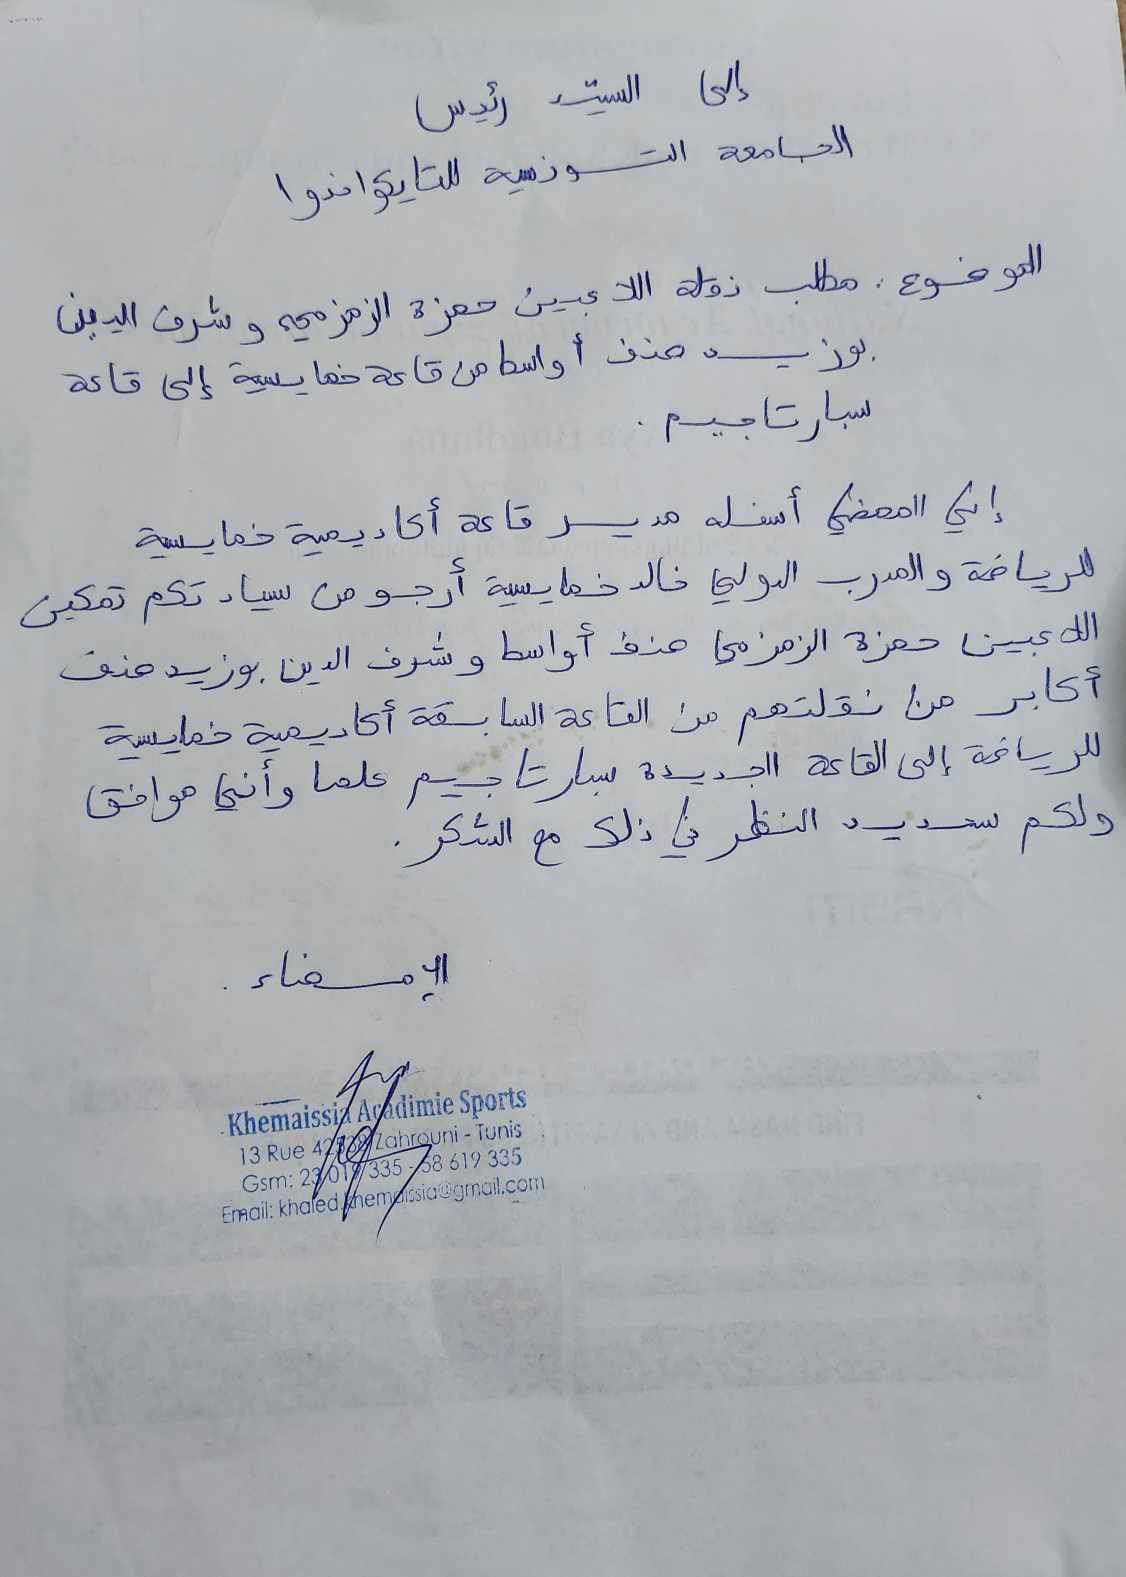 إلى السيد رئيس
الجامعة التونسية للتايكواندوا
الموضوع: مطلب نقلة اللاعبين حمزة الزمزمي وشرف الدين
بوزيد صنف أواسط من قاعة خمايسية إلى قاعة
سبارتا جيم.
إني الممضي أسفله مدير قاعة أكاديمية خمايسية
للرياضة والمدرب الدولي خالد خمايسية أرجو من سيادتكم تمكين
اللاعبين حمزة الزمزمي صنف أواسط وشرف الدين بوزيد صنف
أكابر من نقلتهم من القاعة السابقة أكاديمية خمايسية
للرياضة إلى القاعة الجديدة سبارتا جيم علما وأنني موافق
ولكم سديد النظر في ذلك مع الشكر.
الإمضاء.
Khemaissia Acadimie Sports
13 Rue Zahrouni - Tunis
Gsm: 23 019 335 - 58 619 335
Email: khaled.khemaissia@gmail.com